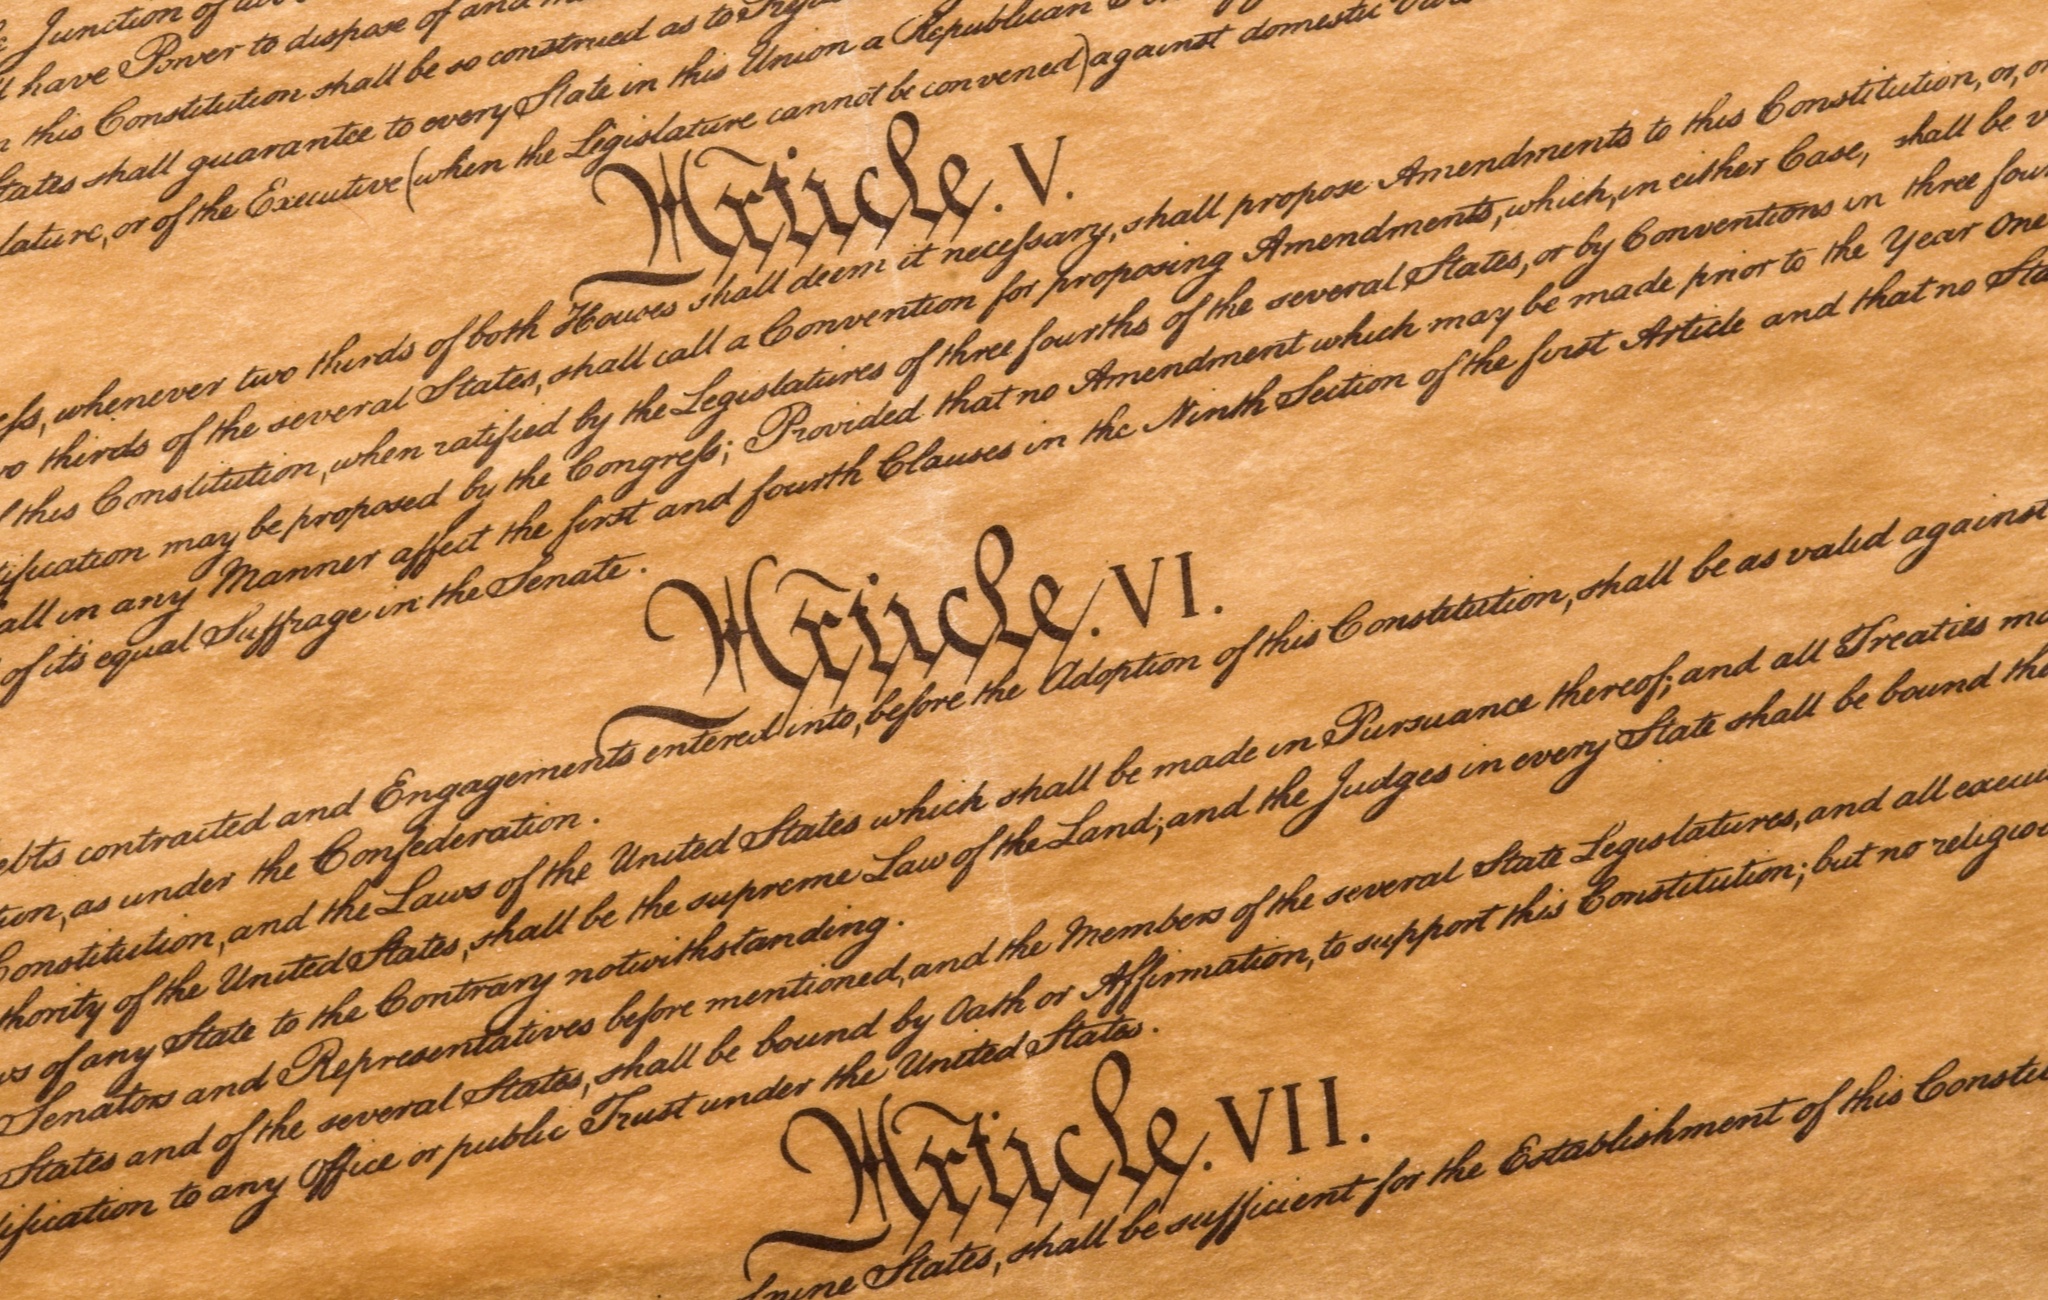 Junction of
have Power to dispose of and
this Constitution shall be so construed as to
States shall guarantee to every State in this Union a Republican
lature, or of the Executive (when the Legislature cannot be convened) against domestic
Article. V.
eſs, whenever two thirds of both Houses shall deem it neceſsary, shall propose Amendments to this Constitution, or, on
wo thirds of the several States, shall call a Convention for proposing Amendments, which, in either Case, shall be v
this Constitution, when ratified by the Legislatures of three fourths of the several States, or by Conventions in three four
ification may be proposed by the Congreſs; Provided that no Amendment which may be made prior to the Year One
all in any Manner affect the first and fourth Clauses in the Ninth Section of the first Article and that no Sta
of it's equal Suffrage in the Senate.
Article. VI.
ebts contracted and Engagements entered into, before the Adoption of this Constitution, shall be as valid against
tion, as under the Confederation.
Constitution, and the Laws of the United States which shall be made in Pursuance thereof; and all Treaties ma
thority of the United States, shall be the supreme Law of the Land; and the Judges in every State shall be bound the
ws of any State to the Contrary notwithstanding.
Senators and Representatives before mentioned, and the Members of the several State Legislatures, and all execu
States and of the several States, shall be bound by Oath or Affirmation, to support this Constitution; but no religiou
ification to any Office or public Trust under the United States.
Article. VII.
f nine States, shall be sufficient for the Establishment of this Constitu